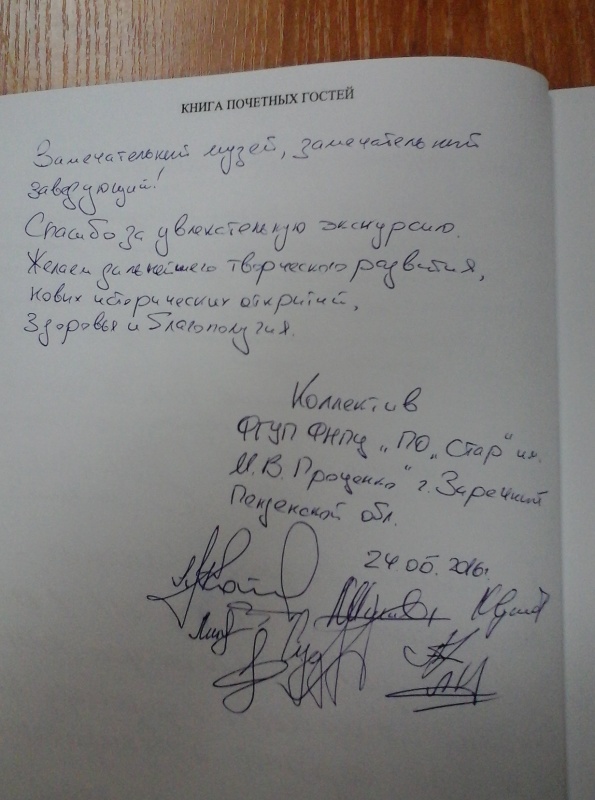 КНИГА ПОЧЕТНЫХ ГОСТЕЙ
Замечательный музей, замечательный
заведующий!
Спасибо за увлекательную экскурсию.
Желаем дальнейшего творческого развития,
новых исторических открытий,
здоровья и благополучия.
Коллектив
ФГУП ФНПЦ „ПО „Старт" им.
М.В. Проценко" г. Заречный
Пензенской обл.
2016г.